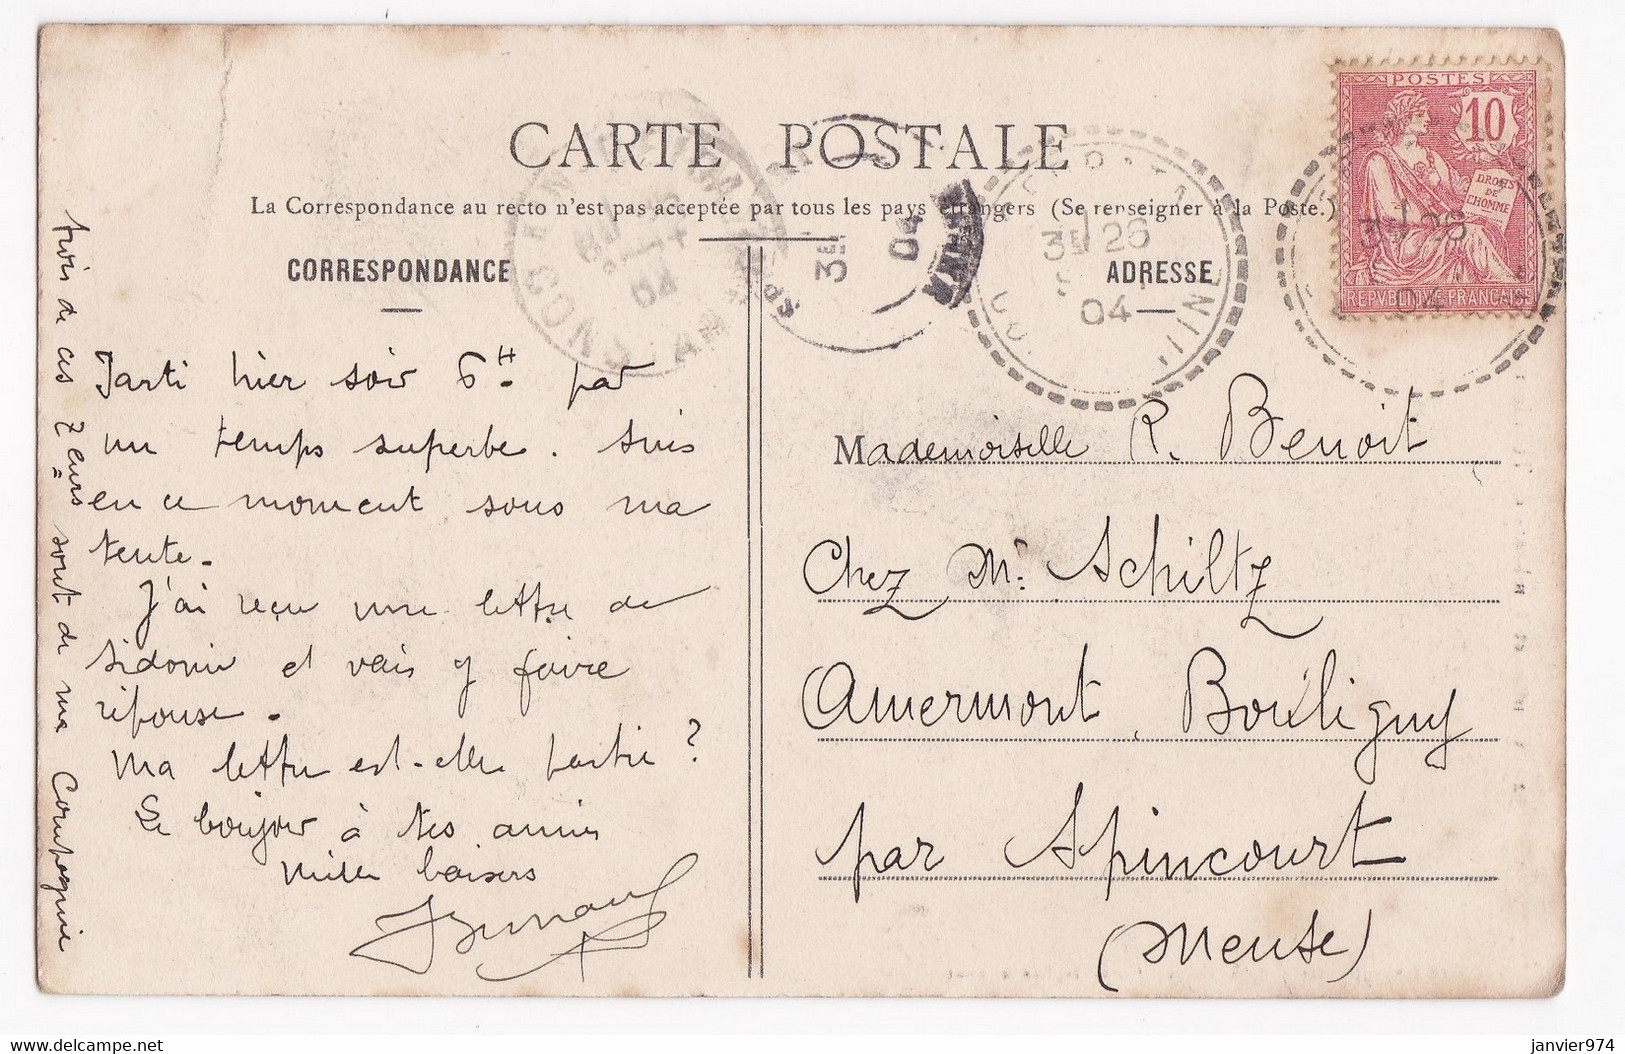 CARTE POSTALE
La Correspondance au recto n'est pas acceptée par tous les pays étrangers (Se renseigner à la Poste.)
CORRESPONDANCE
ADRESSE
POSTES
10
DROITS
DE
L'HOMME
REPVBLIQVE FRANÇAISE
3E 26
04
3E 26
04
3E
04
04
Parti hier soir 6H. par
un temps superbe. Suis
en ce moment sous ma
tente.
J'ai reçu une lettre de
Sidonie et vais y faire
réponse.
Ma lettre est-elle partie ?
Le bonjour à tes amies
Mille baisers
trois de ces sont de ma Compagnie
Mademoiselle R. Benoit
Chez Mr. Schiltz
Amermont, Bouligny
par Spincourt
(Meuse)
janvier974 - delcampe.net